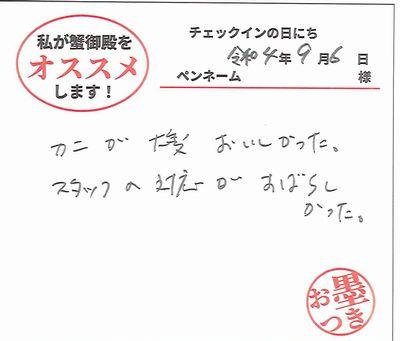 私が蟹御殿を
オススメ
します！
チェックインの日にち
令和4年9月6日
ペンネーム 様
カニが大変おいしかった。
スタッフの対応がすばらし
かった。
墨
おつき